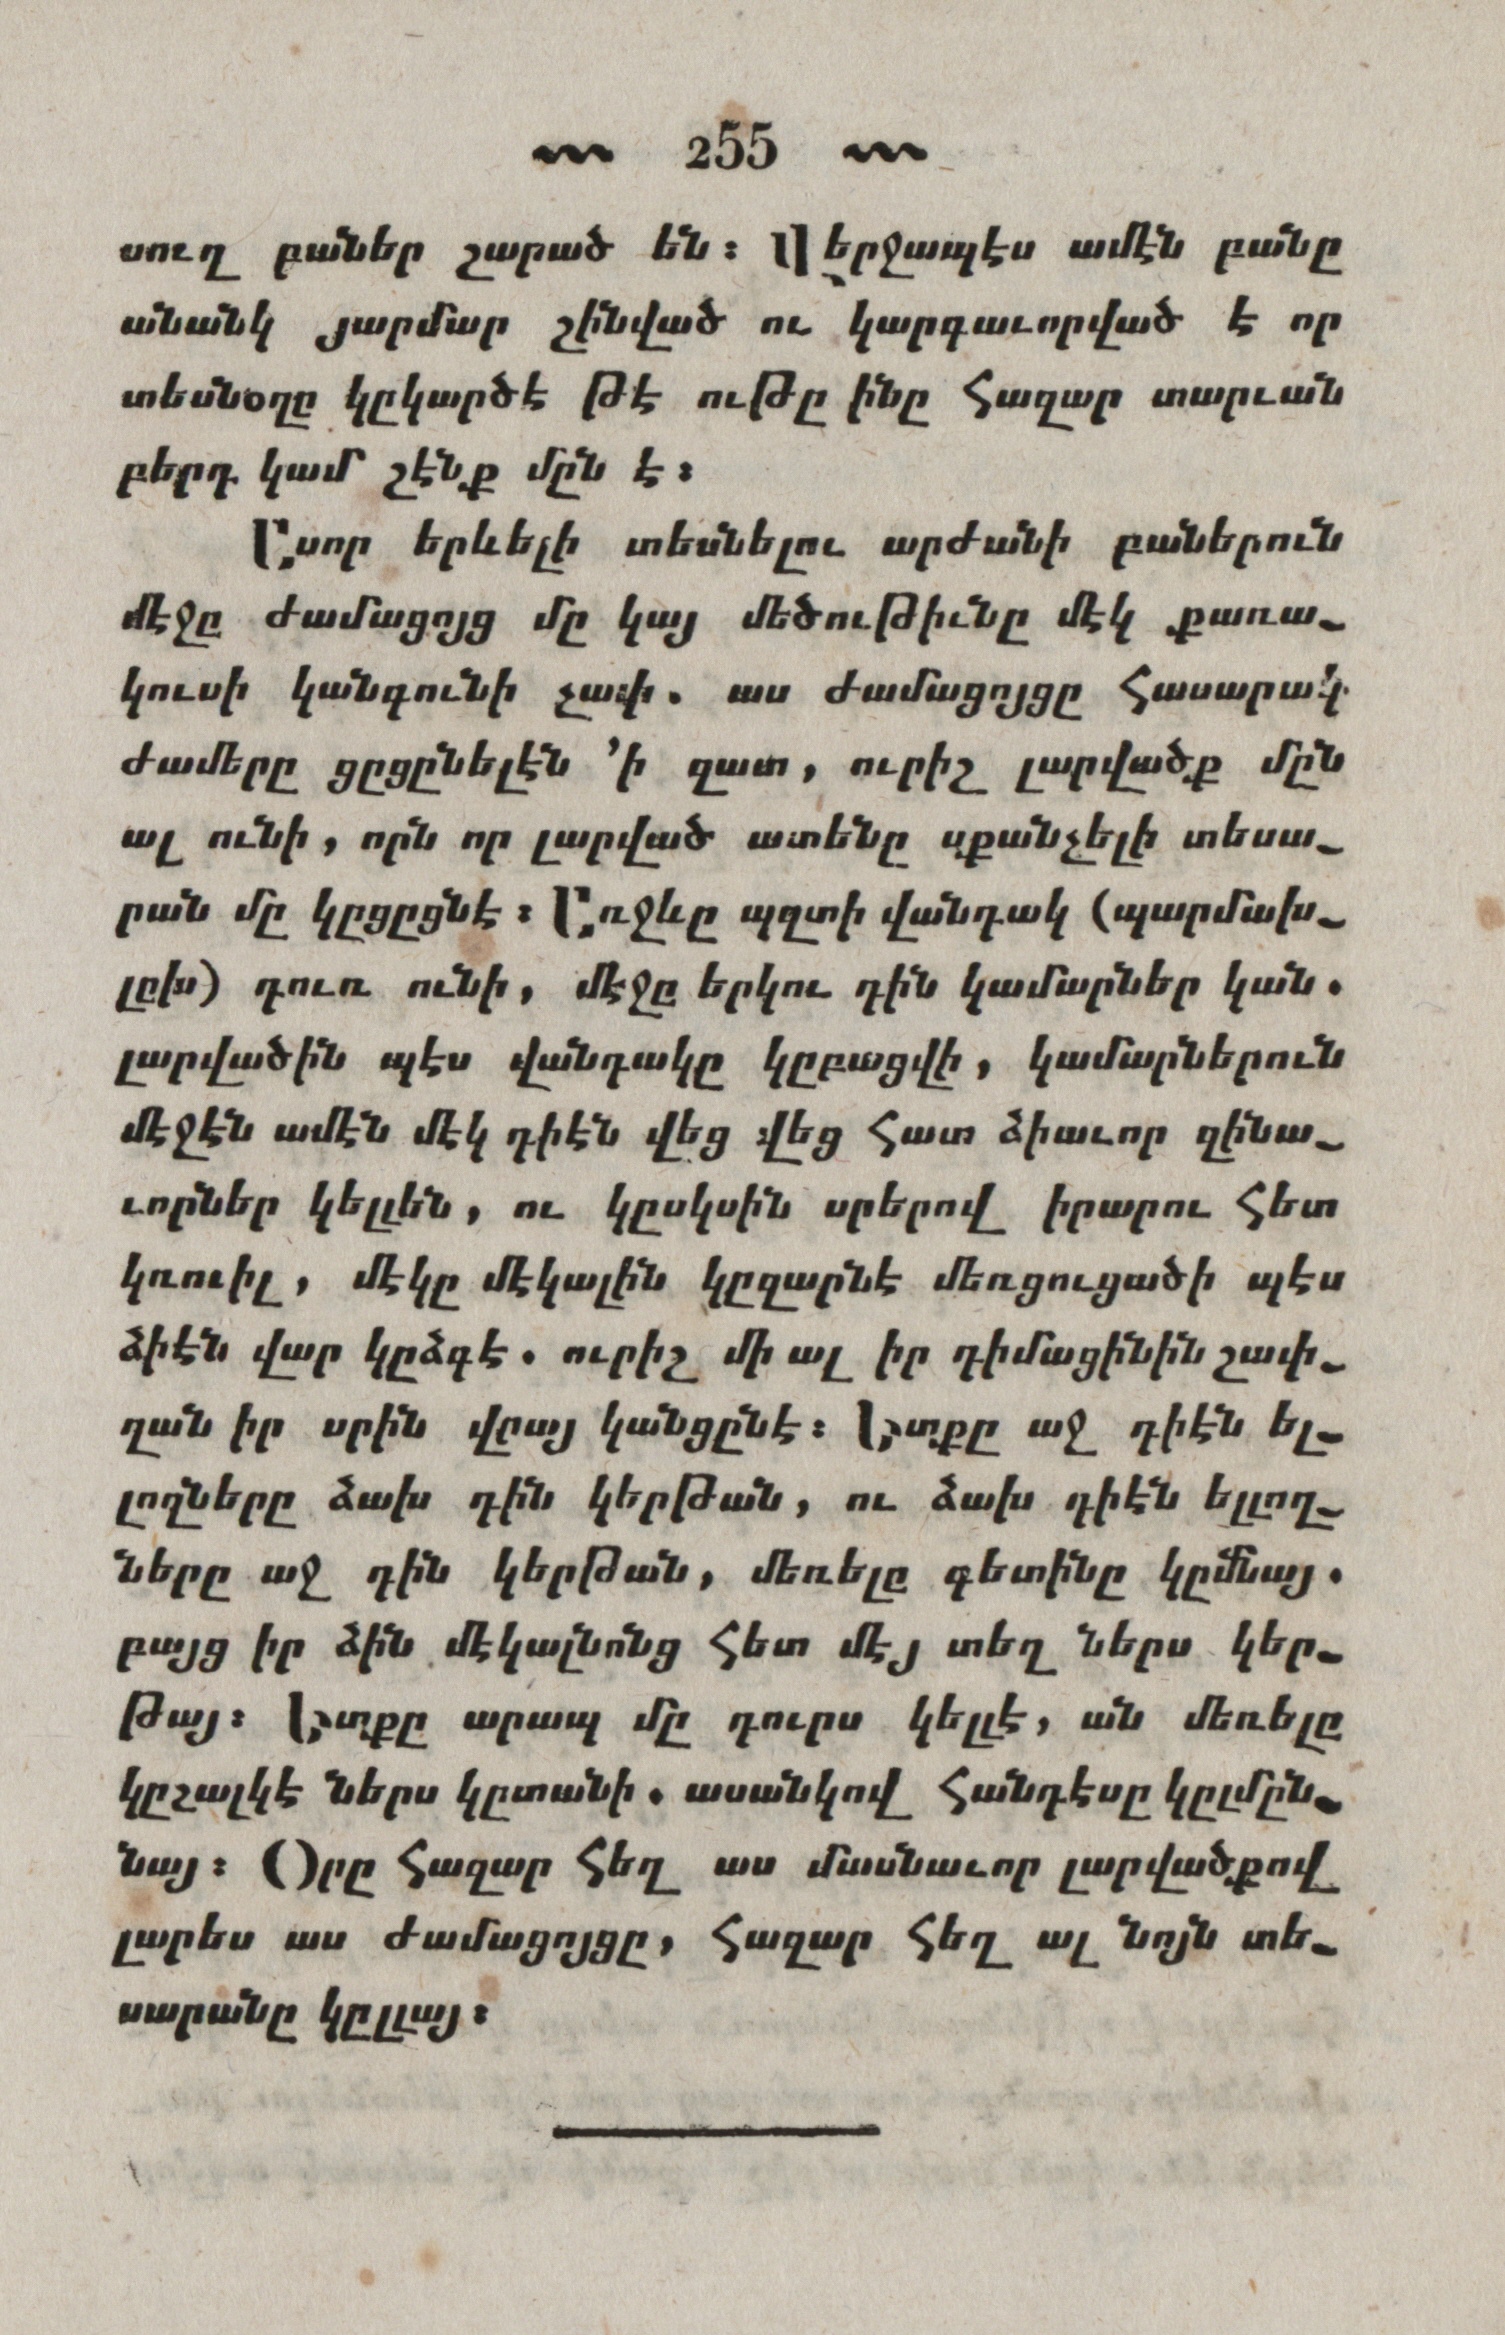 255
սուղ բաներ շարած են։ Վերջապէս ամէն բանը
անանկ յարմար շինված ու կարգաւորված է որ
տեսնօղը կըկարծէ թէ ութը ինը հազար տարւան
բերդ կամ շէնք մըն է։
Ասոր երևելի տեսնելու արժանի բաներուն
մէջը ժամացոյց մը կայ մեծութիւնը մէկ քառա֊
կուսի կանգունի չափ. աս ժամացոյցը հասարակ
ժամերը ցըցընելէն ՚ի զատ, ուրիշ լարվածք մըն
ալ ունի, որն որ լարված ատենը սքանչելի տեսա֊
րան մը կըցըցնէ։ Առջևը պզտի վանդակ (պարմախ֊
լըխ) դուռ ունի, մէջը երկու դին կամարներ կան.
լարվածին պէս վանդակը կըբացվի, կամարներուն
մէջէն ամէն մէկ դիէն վեց վեց հատ ձիաւոր զինա֊
ւորներ կելլեն, ու կըսկսին սրերով իրարու հետ
կռուիլ, մէկը մէկալին կըզարնէ մեռցուցածի պէս
ձիէն վար կըձգէ. ուրիշ մի ալ իր դիմացինին շափ֊
ղան իր սրին վրայ կանցընէ։ Ետքը աջ դիէն ել֊
լողները ձախ դին կերթան, ու ձախ դիէն ելլող֊
ները աջ դին կերթան, մեռելը գետինը կըմնայ.
բայց իր ձին մէկալնոնց հետ մէյ տեղ ներս կեր֊
թայ։ Ետքը արապ մը դուրս կելլէ, ան մեռելը
կըշալկէ ներս կըտանի. ասանկով հանդէսը կըլմըն֊
նայ։ Օրը հազար հեղ աս մասնաւոր լարվածքով
լարես աս ժամացոյցը, հազար հեղ ալ նոյն տե֊
սարանը կըլլայ։